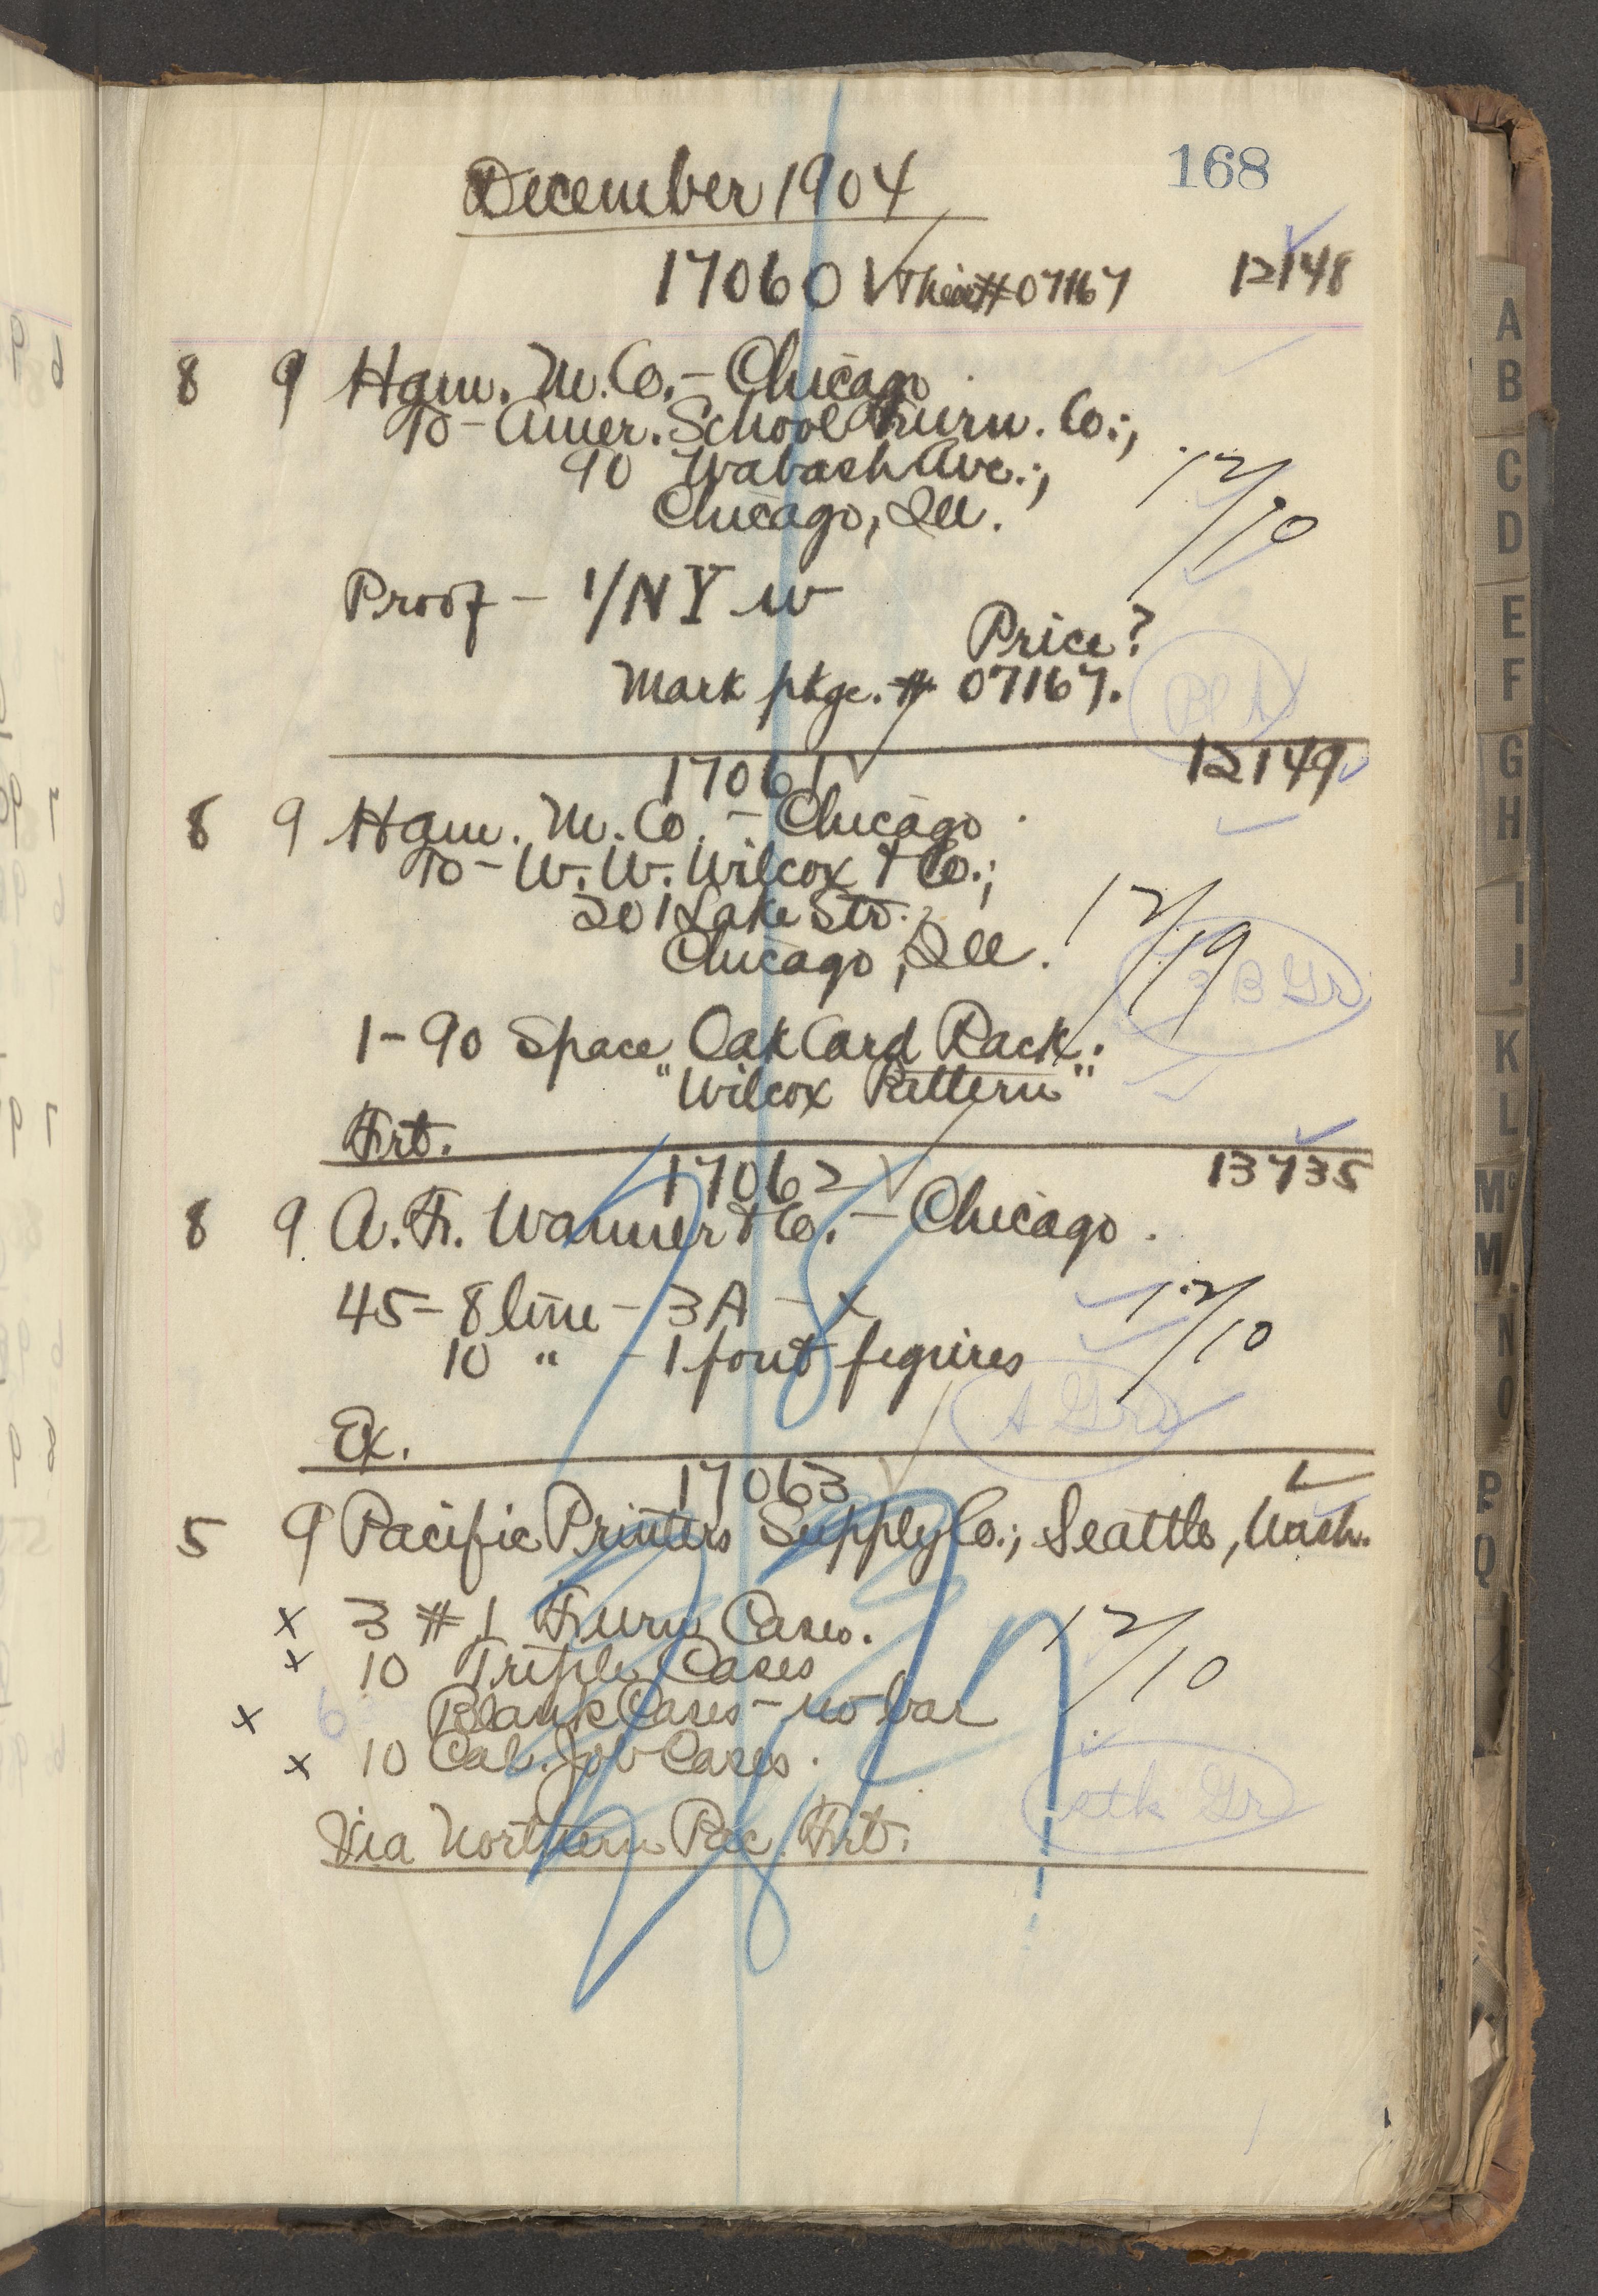 168
December 1904
17060 Their # 07167 12148
8 9 Ham. M. Co. - Chicago
To - Amer. School Furn. Co.;
90 Wabash Ave.;
Chicago, Ill.
12/10
Proof - 1/NY w
Price?
Mark pkge. # 07167.
Bl A
17061 12149
8 9 Ham. M. Co. - Chicago
To - W. W. Wilcox & Co.;
201 Lake Str.
Chicago, Ill.
12/19
B Gr
1 - 90 Space Oak Card Rack.
"Wilcox Pattern"
Frt.
17062 13735
8 9 A. F. Wanner & Co. - Chicago.
45 - 8 line - 3 A - x
12/10
10 " - 1 font figures
A Gr
Ex.
17063
5 9 Pacific Printers Supply Co.; Seattle, Wash.
x 3 # 1 Furn Cases.
12/10
x 10 Triple Cases
x 6 Blank Cases - no bar
x 10 Cal. Job Cases.
stk Gr
Via Northern Pac. Frt.
A
B
C
D
E
F
G
H
I
J
K
L
Mc
M
N
O
P
Q